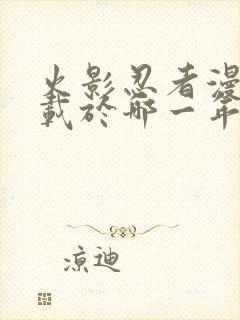 火影忍者漫
載於哪一年
凉迪